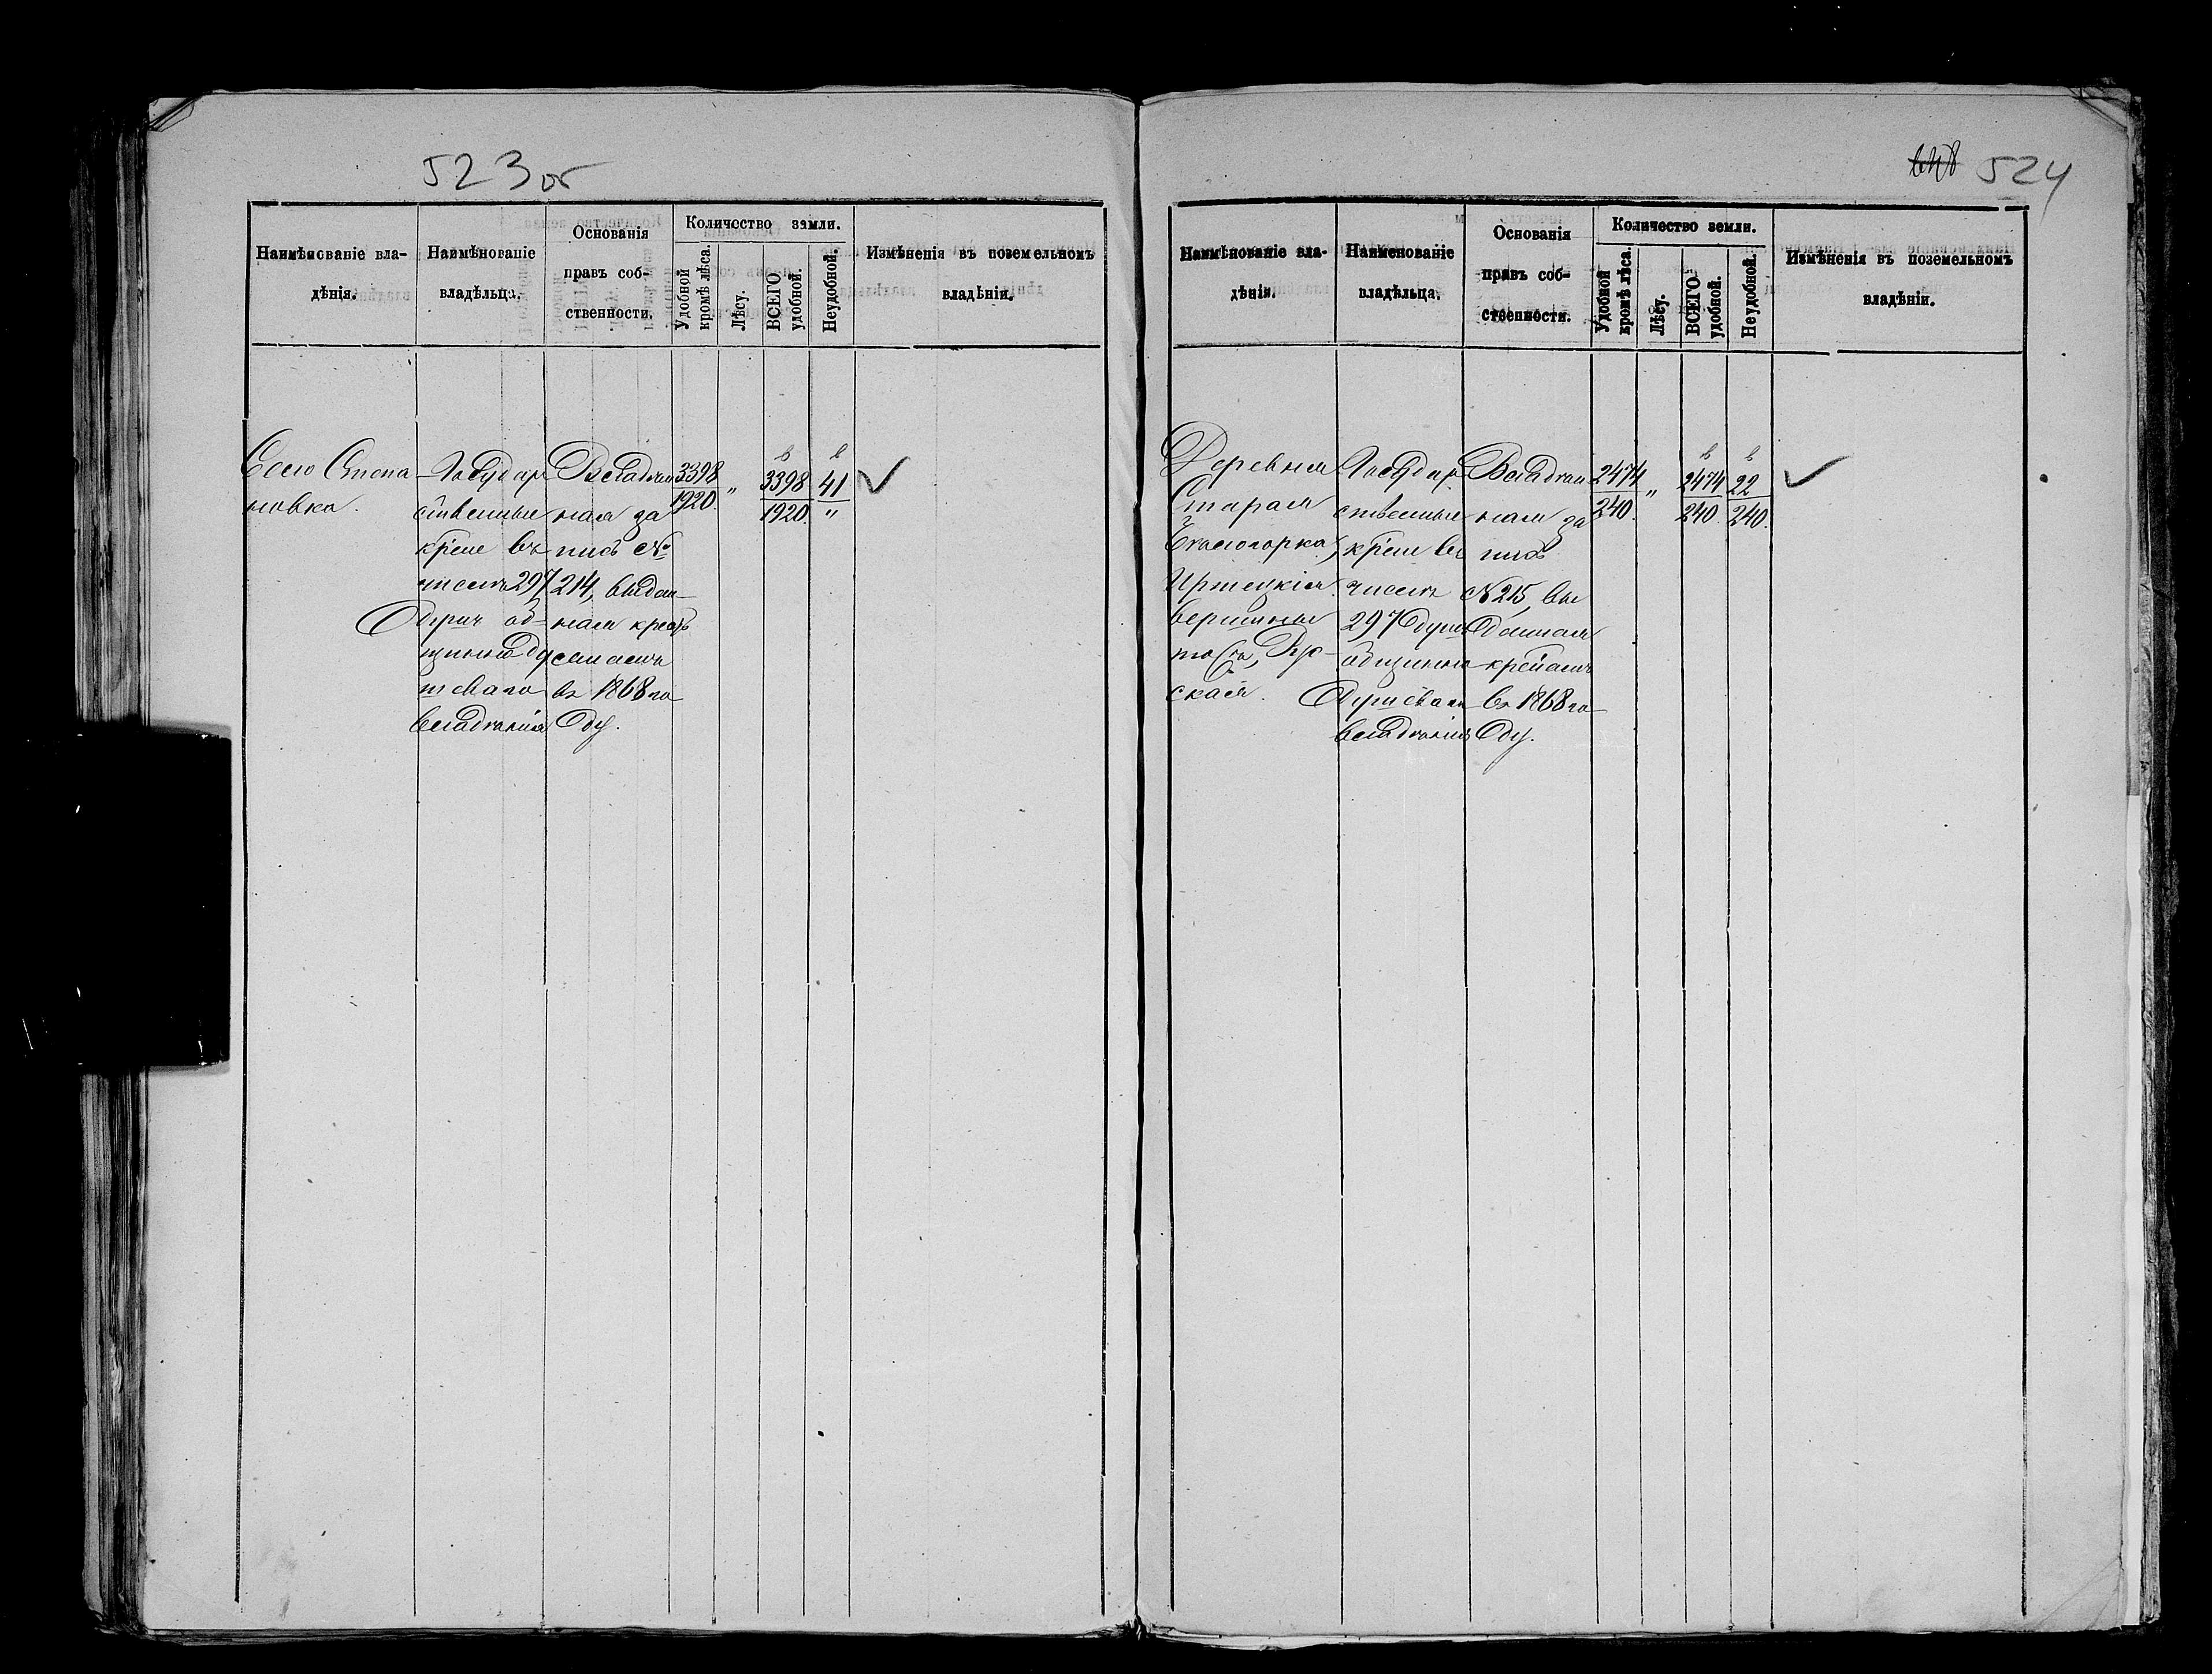 523 об
Наимѣнованіе вла-
дѣнія.
Наимѣнованіе
владѣльца.
Основанія
правъ соб-
ственности.
Количество земли.
Удобной
кромѣ лѣса.
Лѣсу.
ВСЕГО
удобной.
Неудобной.
Измѣненія въ поземельномъ
владѣніи.
Село Степа
новка.
Государ
ственные
кр̃яне въ
числѣ 297
душъ об-
щинно ду
шеваго
владѣнія
Владѣн
ная за
пись №
214, выдан
ная крес̃ть
янамъ
въ 1868 го
ду.
3398
1920.
"
3398
1920
41
"
524
Наимѣнованіе вла-
дѣнія.
Наименованіе
владѣльца.
Основанія
правъ соб-
ственности.
Количество земли.
Удобной
кромѣ лѣса.
Лѣсу.
ВСЕГО
удобной.
Неудобной.
Измѣненія въ поземельномъ
владѣніи.
Деревня
Старая
вершины
ская.
Государ
ственные
кр̃яне въ
числѣ
297 душъ
общинно
душеваго
владѣнія
Владѣн
ная за
пись
№ 215, вы
данная
въ 1868 го
ду.
2474
240.
"
2474
240
22
240.